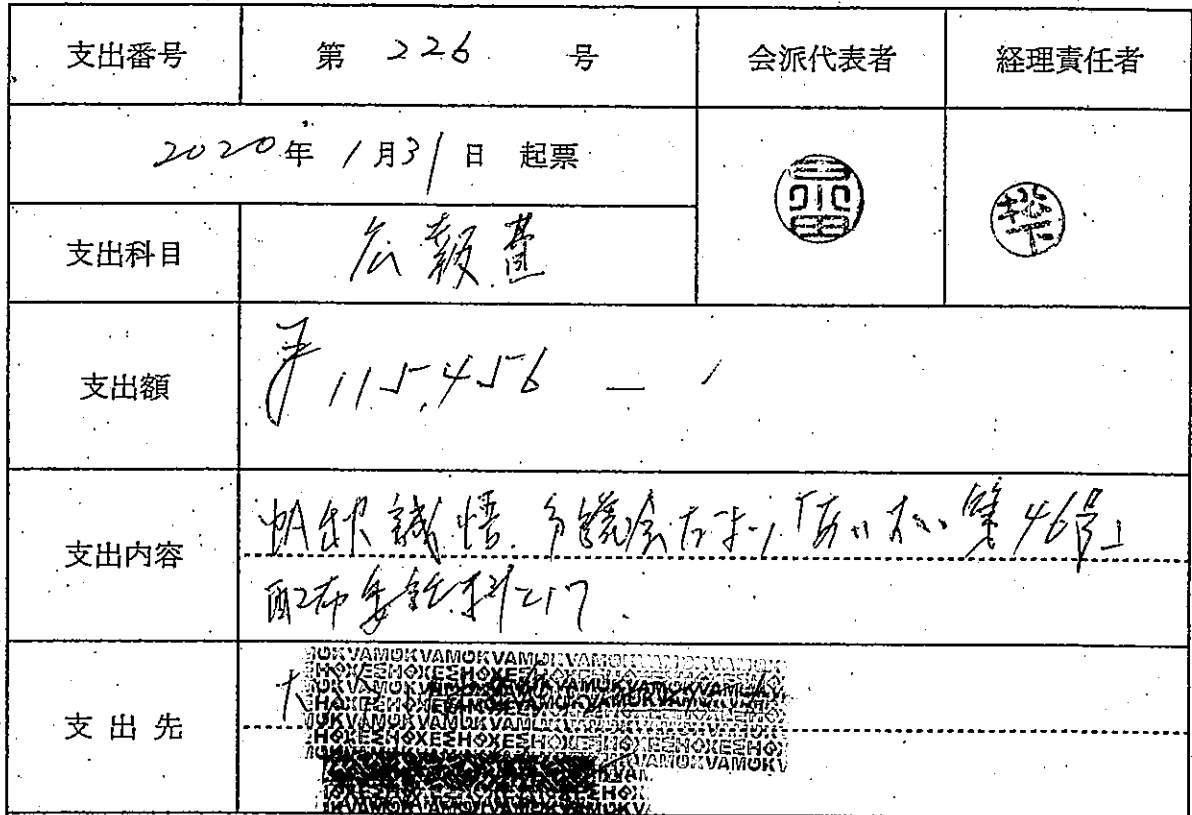 支出番号 第 226 号 会派代表者 経理責任者
2020年 1月31日 起票
松下
支出科目 広報費
支出額 ¥115,456 —
支出内容 議会だより 第46号」
配布委託料として.
支出先 大